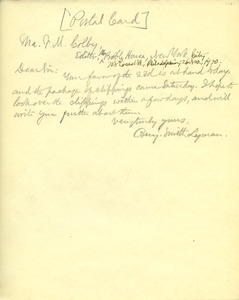 [Postal Card]
Mr. F. M. Colby,
Editor, House, New York City.
Dear Sir:
Your favor of the 22d is at hand today,
and the package of clippings came Saturday. I hope to
look over the clippings within a few days, and will
write you further about them.
Very truly yours,
Benj. Smith Lyman.